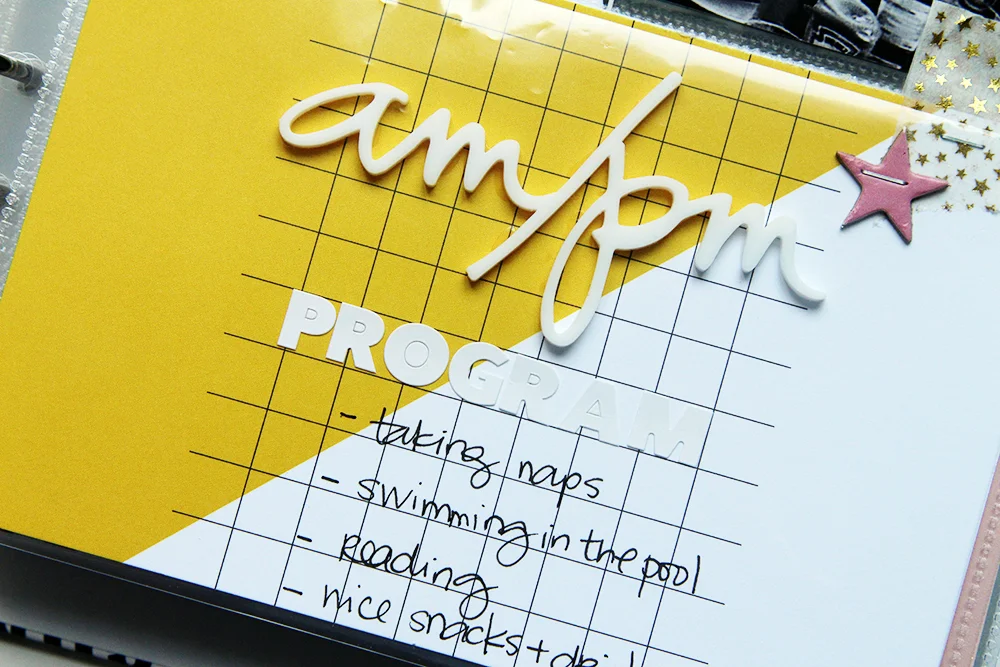 am/pm
PROGRAM
- taking naps
- swimming in the pool
- Reading
- nice snacks +